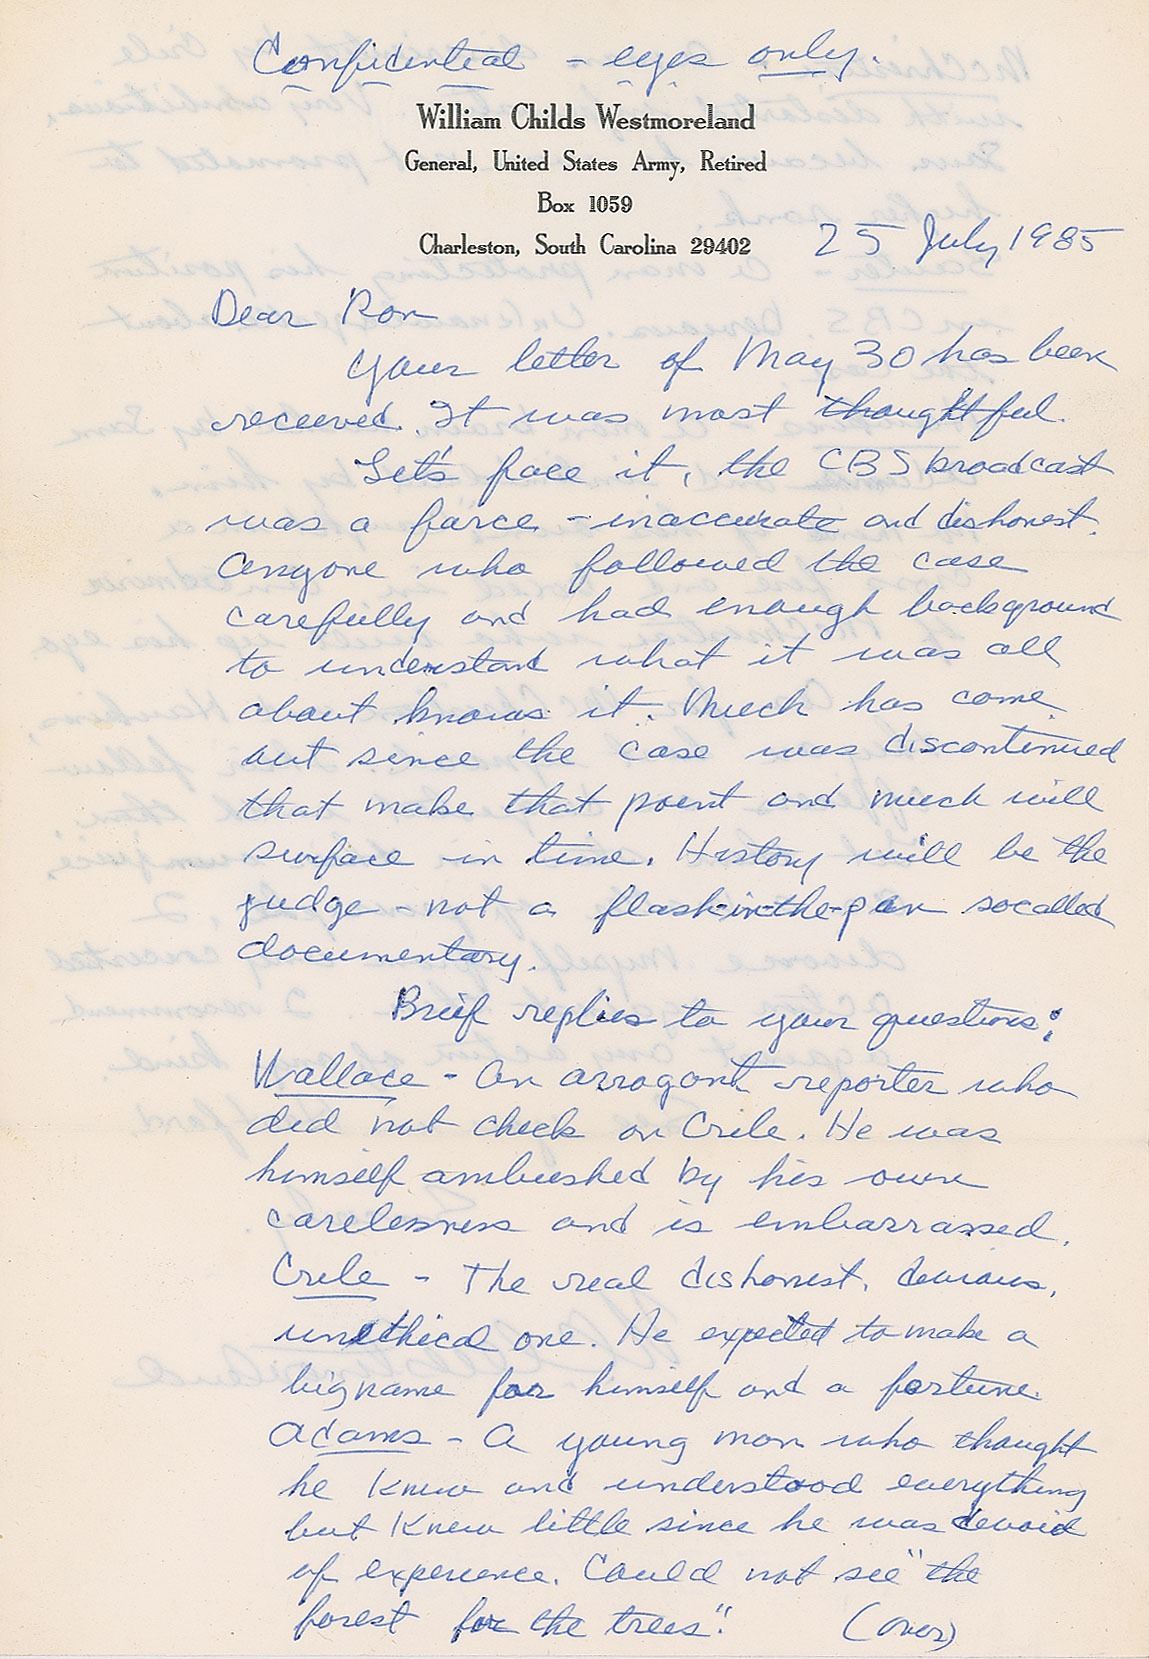 Confidential - eyes only.
William Childs Westmoreland
General, United States Army, Retired
Box 1059
Charleston, South Carolina 29402
25 July 1985
Dear Ron
Your letter of May 30 has been
received. It was most thoughtful.
Let's face it, the CBS broadcast
was a farce - inaccurate and dishonest.
Anyone who followed the case
carefully and had enough background
to understand what it was all
about knows it. Much has come
out since the case was discontinued
that make that point and much will
surface in time. History will be the
judge - not a flash-in-the-pan socalled
documentary.
Brief replies to your questions:
Wallace - An arrogant reporter who
did not check on Crile. He was
himself ambushed by his own
carelessness and is embarrassed.
Crile - The real dishonest, devious,
unethical one. He expected to make a
big name for himself and a fortune.
Adams - A young man who thought
he knew and understood everything
but knew little since he was devoid
of experience. Could not see "the
forest for the trees." (over)